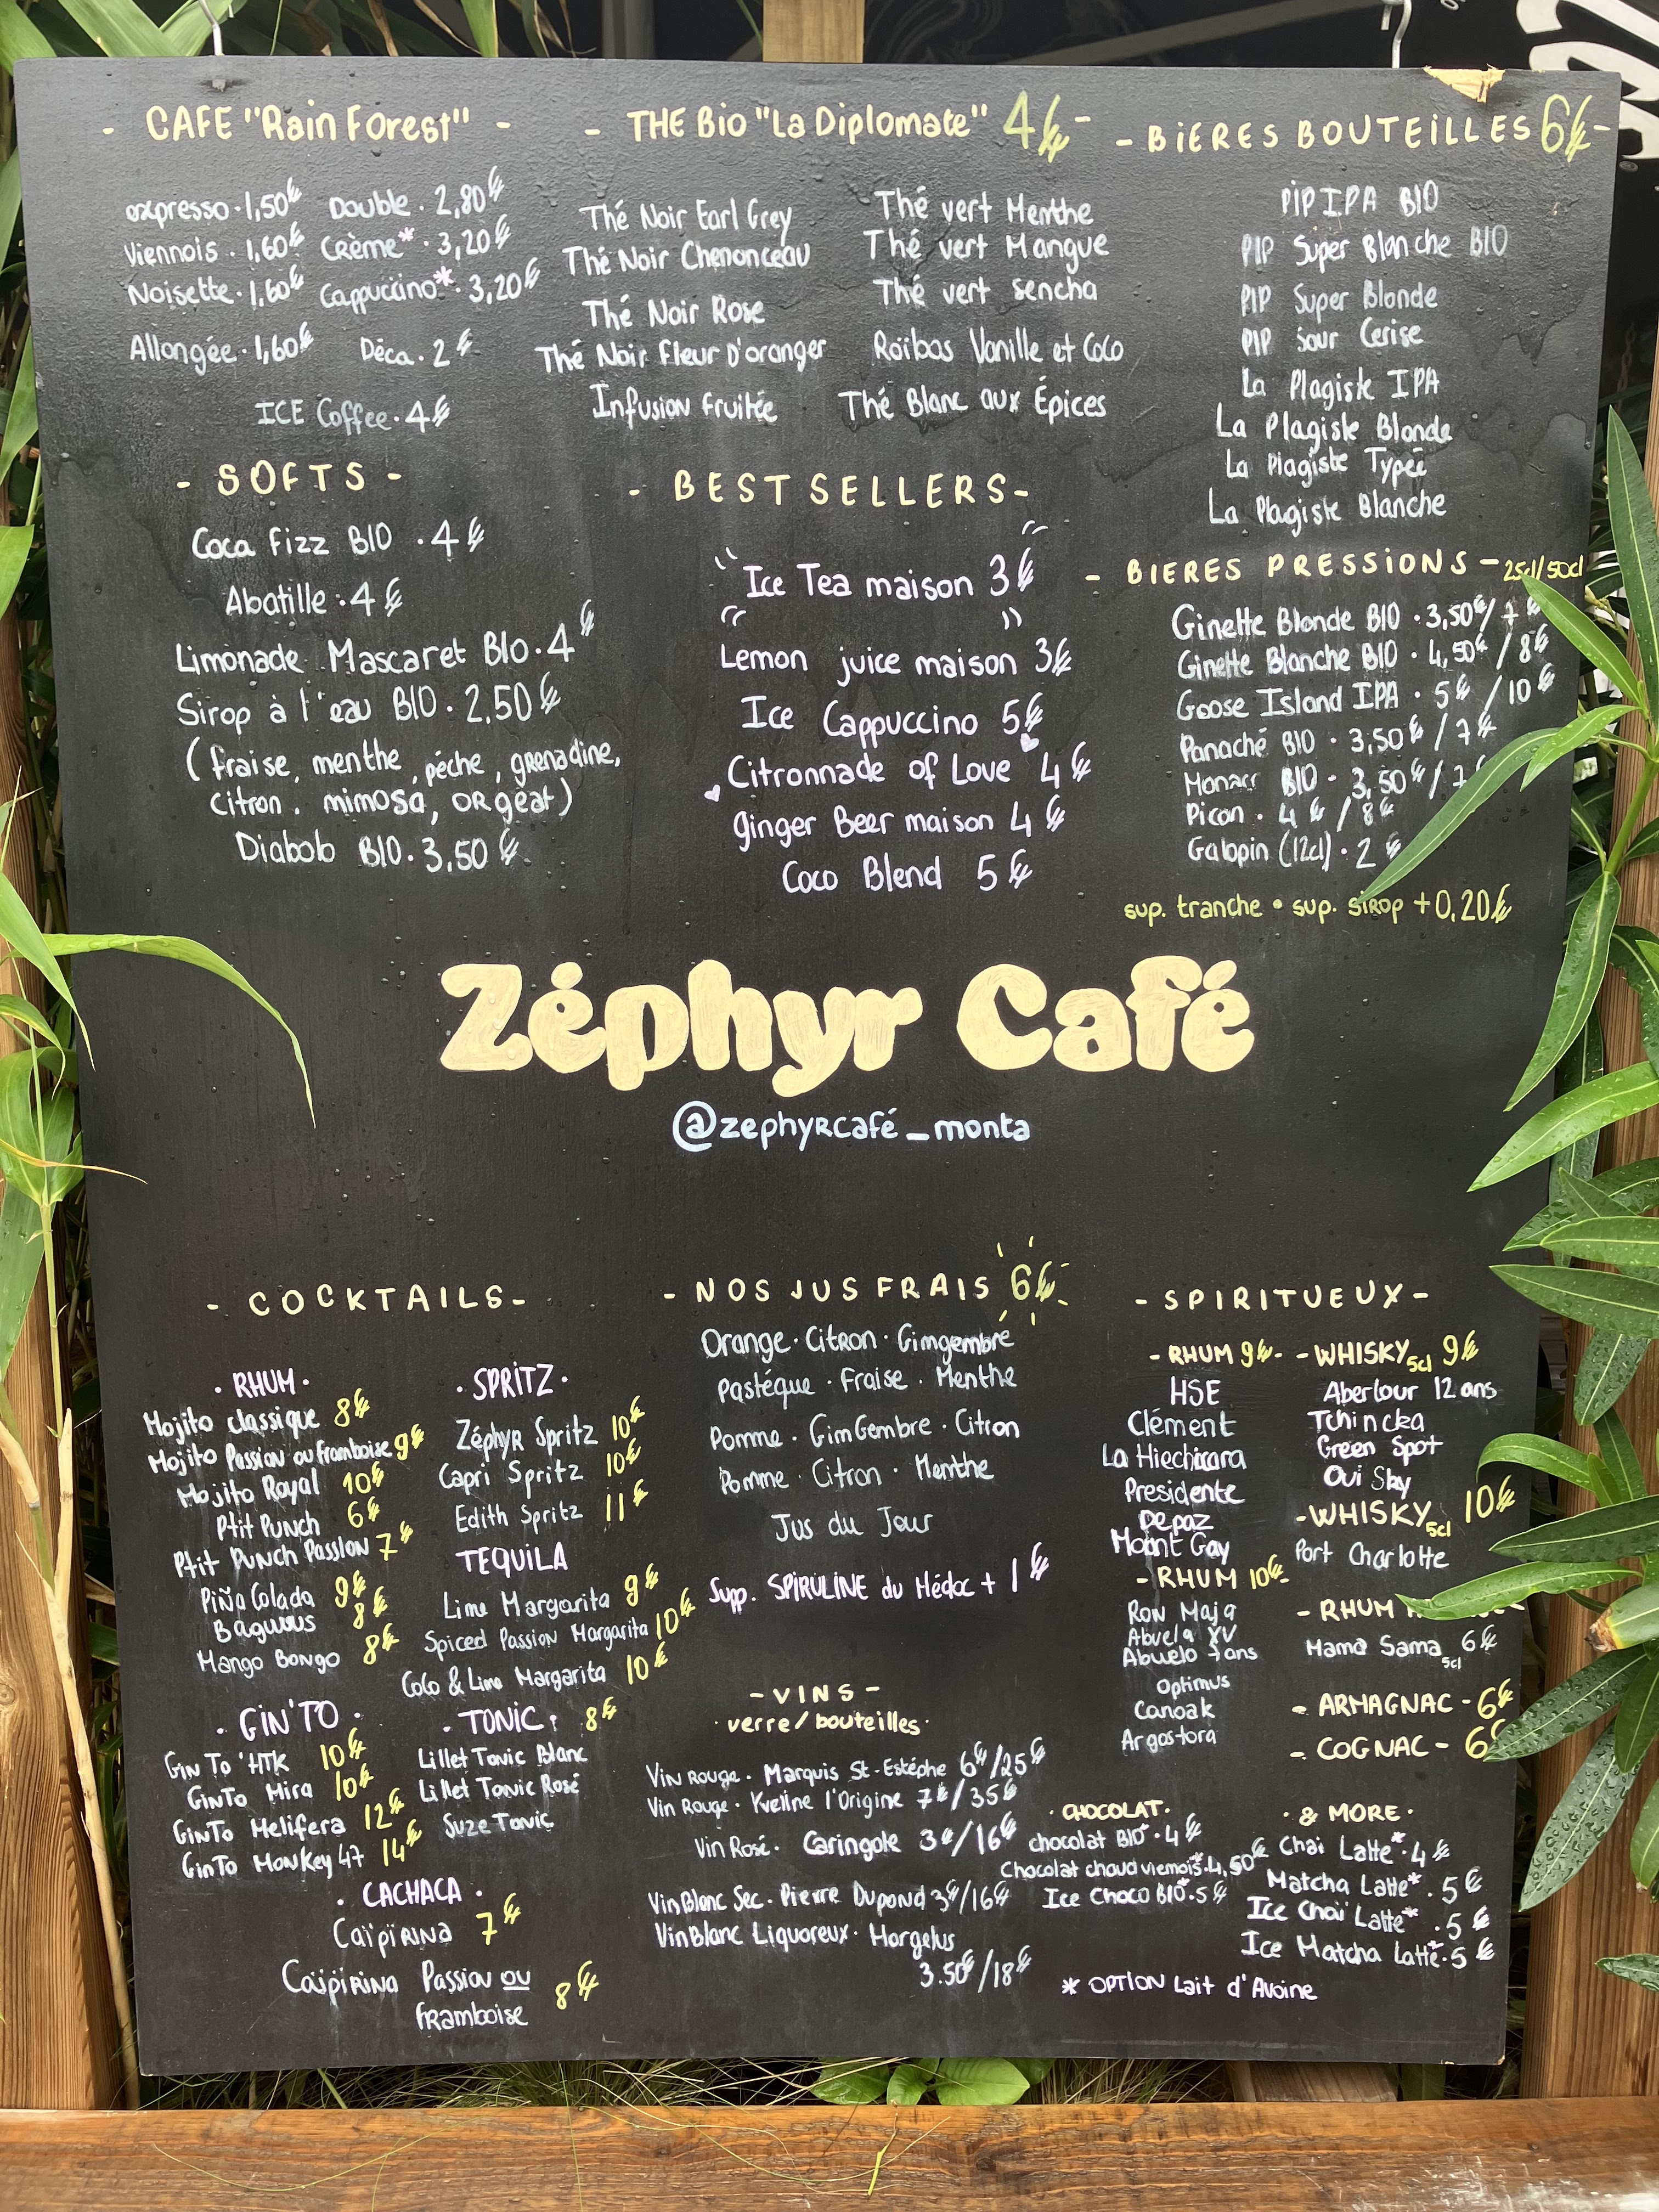 - CAFE "Rain Forest" -
expresso · 1,50€ Double · 2,80€
Viennois · 1,60€ Crème* · 3,20€
Noisette · 1,60€ Cappuccino* · 3,20€
Allongée · 1,60€ Déca · 2€
ICE Coffee · 4€
- THE Bio "La Diplomate" 4€ -
Thé Noir Earl Grey Thé vert Menthe
Thé Noir Chenonceau Thé vert Mangue
Thé Noir Rose Thé vert sencha
Thé Noir Fleur D'oranger Roïbos Vanille et Coco
Infusion Fruitée Thé Blanc aux Épices
- BiERES BOUTEiLLES 6€ -
PiP IPA BIO
PIP Super Blanche BIO
PIP Super Blonde
PIP Sour Cerise
La Plagiste IPA
La Plagiste Blonde
La Plagiste Typée
La Plagiste Blanche
- SOFTS -
Coca Fizz BIO · 4€
Abatille · 4€
Limonade Mascaret BIO · 4€
Sirop à l'eau BIO · 2,50€
(fraise, menthe, pêche, grenadine,
citron, mimosa, orgeat)
Diabolo BIO · 3,50€
- BEST SELLERS -
Ice Tea maison 3€
Lemon juice maison 3€
Ice Cappuccino 5€
Citronnade of Love 4€
ginger Beer maison 4€
Coco Blend 5€
- BIERES PRESSIONS - 25cl/50cl
Ginette Blonde BIO · 3,50€/7€
Ginette Blanche BIO · 4,50€/8€
Goose Island IPA · 5€/10€
Panaché BIO · 3,50€/7€
BIO - 3,50€/7€
Picon · 4€/8€
Galopin (12cl) · 2€
sup. tranche • sup. sirop +0,20€
Zéphyr Café
@zephyrcafé_monta
- COCKTAILS -
· RHUM ·
Mojito classique 8€
Mojito Passion ou framboise 9€
Mojito Royal 10€
Ptit Punch 6€
Ptit Punch Passion 7€
Piña Colada 9€
8€
Mango Bongo 8€
· SPRITZ ·
Zéphyr Spritz 10€
Capri Spritz 10€
Edith Spritz 11€
TEQUILA
Lime Margarita 9€
Spiced Passion Margarita 10€
Coco & Lime Margarita 10€
· GIN'TO ·
Gin To 'HTK 10€
GinTo Mira 10€
GinTo Melifera 12€
GinTo Monkey 47 14€
· TONIC · 8€
Lillet Tonic Blanc
Lillet Tonic Rosé
Suze Tonic
· CACHACA ·
Caïpïrina 7€
Caïpïrina Passion ou
framboise 8€
- NOS JUS FRAIS 6€ -
Orange · Citron · Gimgembre
Pastèque · Fraise · Menthe
Pomme · GimGembre · Citron
Pomme · Citron · Menthe
Jus du Jour
Supp. SPIRULINE du Médoc + 1€
- VINS -
verre/bouteilles
Vin Rouge · Marquis St-Estéphe 6€/25€
Vin Rouge · Yveline l'Origine 7€/35€
Vin Rosé · Caringole 3€/16€
Vin Blanc Sec · Pierre Dupond 3€/16€
Vin Blanc Liquoreux ·
3.50€/18€
- SPIRITUEUX -
- RHUM 9€ -
HSE
Clément
La Hiechicara
Presidente
Depaz
Mount Gay
- RHUM 10€ -
Row Maja
Abuela XV
Abuelo 7ans
Optimus
Canoak
Argostora
- WHISKY 5cl 9€
Aberlour 12 ans
Tchincka
Green Spot
Oui Sky
- WHISKY 5cl 10€
Port Charlotte
- RHUM
Mama Sama 5cl 6€
- ARMAGNAC - 6€
- COGNAC - 6€
· CHOCOLAT ·
chocolat BIO* · 4€
Chocolat chaud viennois* · 4,50€
Ice Choco BIO* · 5€
· & MORE ·
Chaï Latte* · 4€
Matcha Latte* · 5€
Ice Chaï Latte* · 5€
Ice Matcha Latte* · 5€
* OPTION Lait d'Avoine